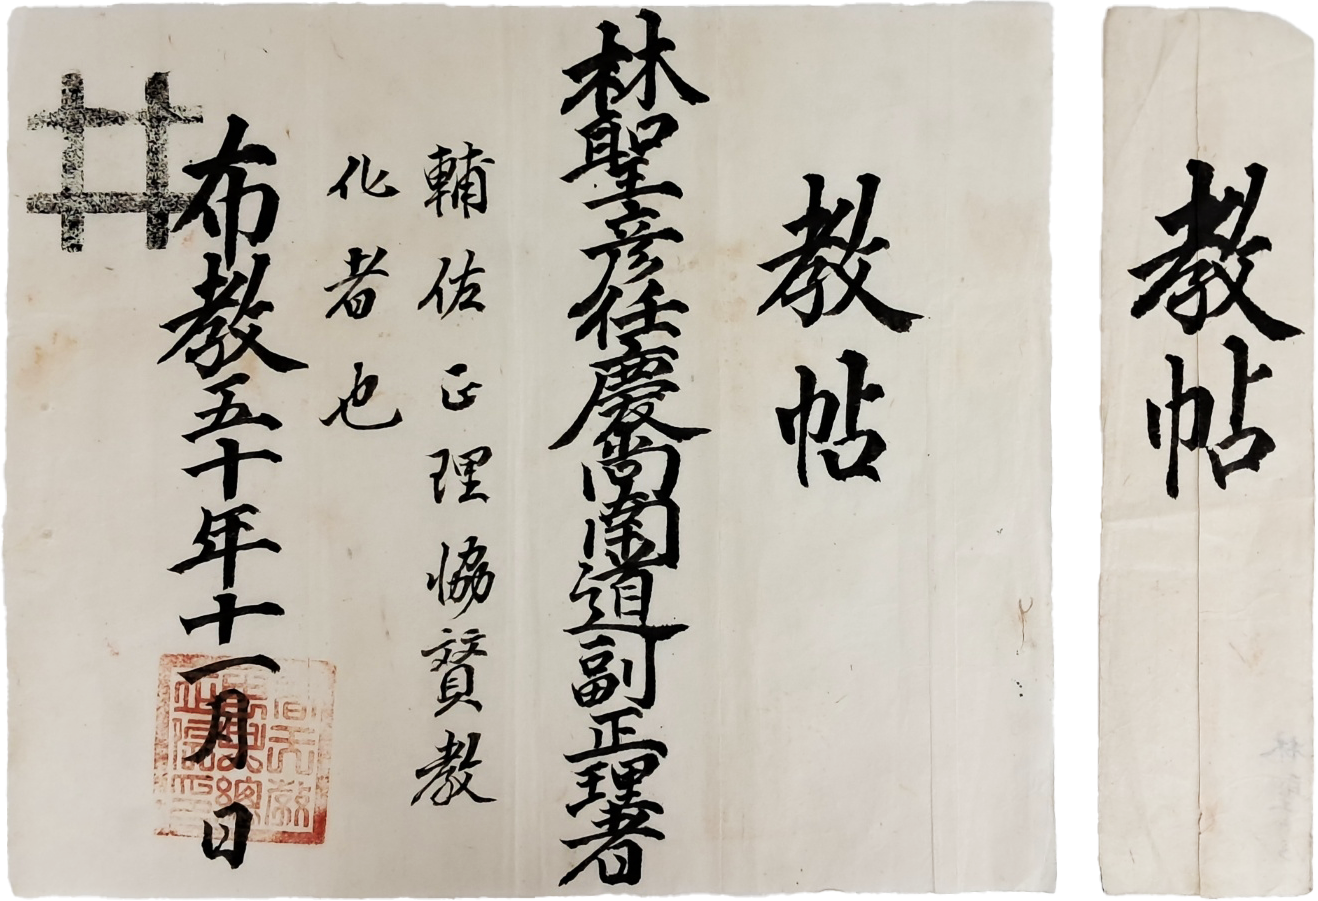 教帖
教帖
林聖彦任慶尚南道副正理者
輔佑正理恊贊教
化者也
布教五十年十一月日
侍天教